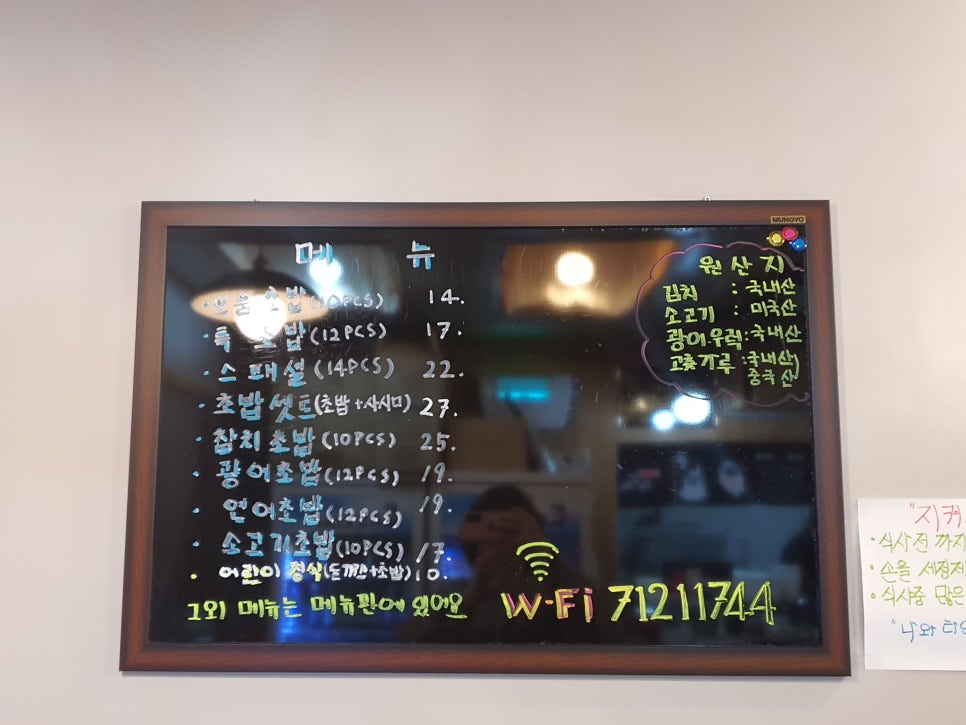 MUNGYO
메 뉴
· 모둠초밥(10PCS) 14.
· 특 초밥(12PCS) 17.
· 스패셜(14PCS) 22.
· 초밥셋트(초밥+사시미) 27.
· 참치초밥(10PCS) 25.
· 광어초밥(12PCS) 19.
· 연어초밥(12PCS) 19.
· 소고기초밥(10PCS) 17.
· 어린이 정식(돈까스+초밥) 10.
그외 메뉴는 메뉴판에 있어요
원산지
김치 : 국내산
소고기 : 미국산
광어·우럭:국내산
고춧가루:국내산
중국산
Wi-Fi 71211744
"지켜
·식사전까지
·손을 세정
·식사중 많은
"나와 타인